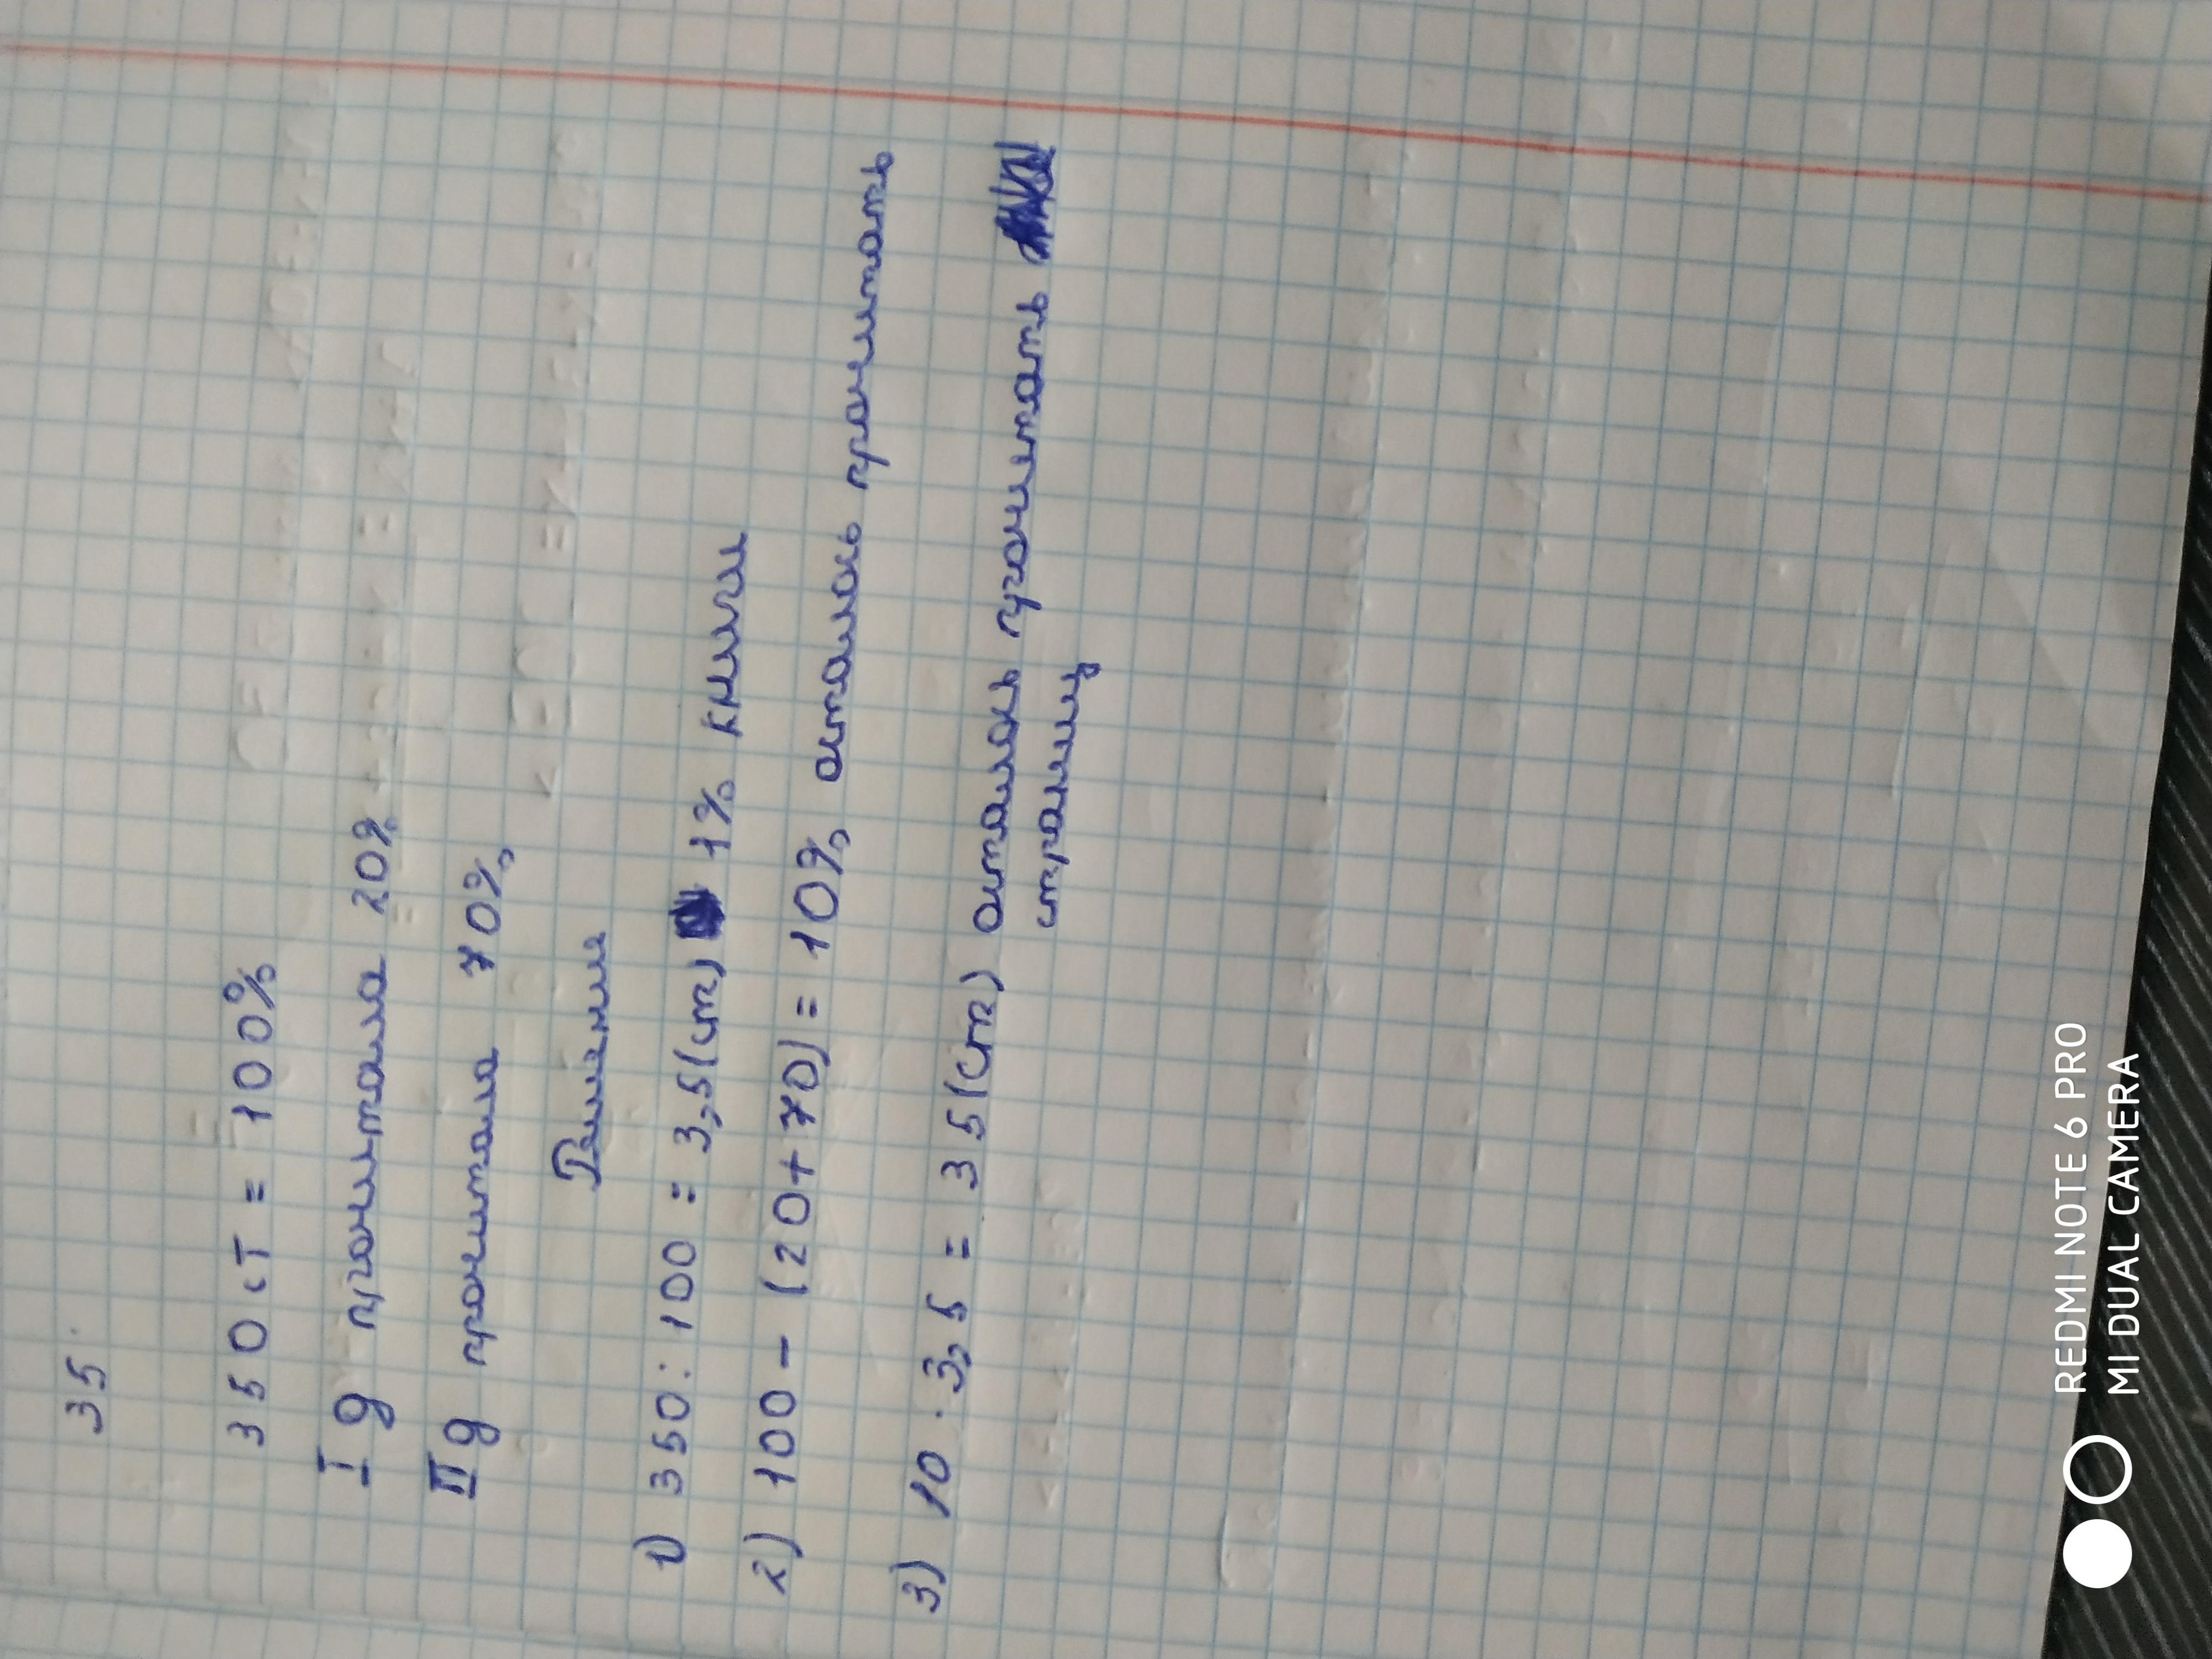 35.
350 ст = 100%
I д прочитала 20%
II д прочитала 70%
Решение
1) 350 : 100 = 3,5(ст) 1% книги
2) 100 - (20+70) = 10% осталось прочитать
3) 10 · 3,5 = 35(ст) осталось прочитать
страниц
REDMI NOTE 6 PRO
MI DUAL CAMERA